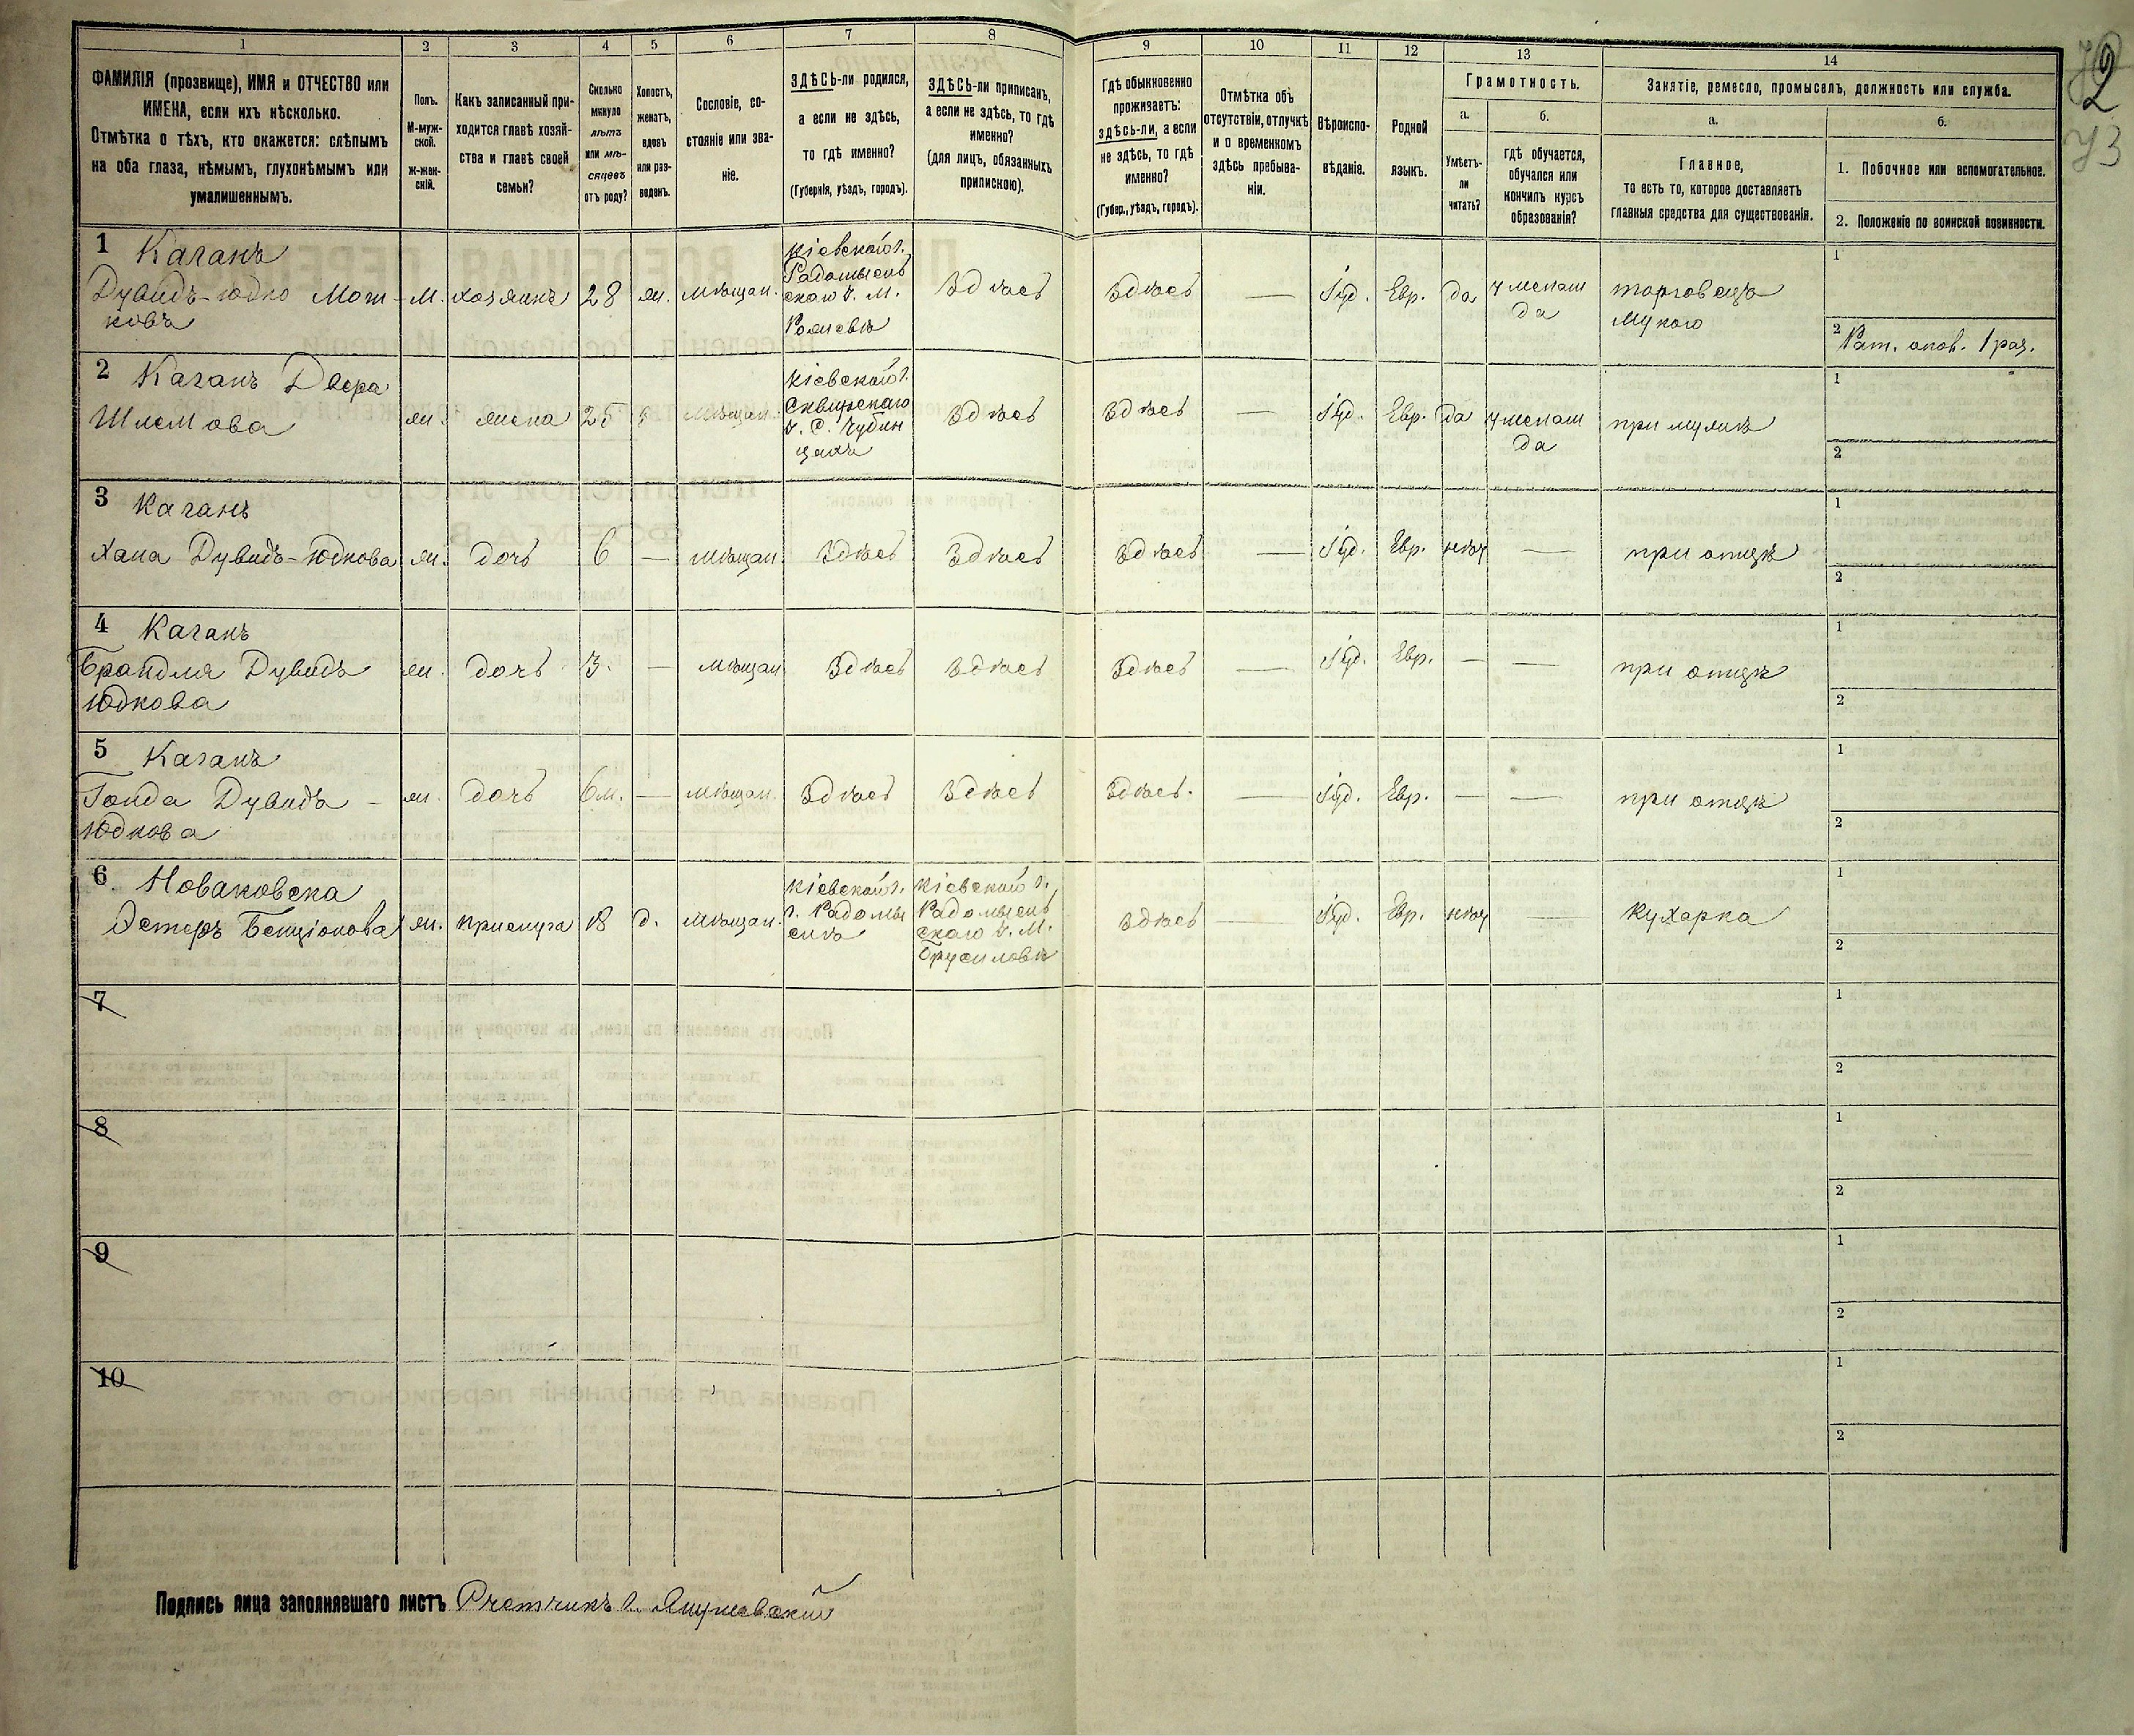 1 2 3 4 5 6 7 8 9 10 11 12 13 14
ФАМИЛІЯ (прозвище), ИМЯ и ОТЧЕСТВО или
ИМЕНА, если ихъ нѣсколько.
Отмѣтка о тѣхъ, кто окажется: слѣпымъ
на оба глаза, нѣмымъ, глухонѣмымъ или
умалишеннымъ.
Полъ.
М-муж-
ской.
ж-жен-
скій.
Какъ записанный при-
ходится главѣ хозяй-
ства и главѣ своей
семьи?
Сколько
минуло
лѣтъ
или мѣ-
сяцевъ
отъ роду?
Холостъ,
женатъ,
вдовъ
или раз-
веденъ.
Сословіе, со-
стояніе или зва-
ніе.
ЗДѢСЬ-ли родился,
а если не здѣсь,
то гдѣ именно?
(Губернія, уѣздъ, городъ).
ЗДѢСЬ-ли приписанъ,
а если не здѣсь, то гдѣ
именно?
(для лицъ, обязанныхъ
припискою).
Гдѣ обыкновенно
проживаетъ:
здѣсь-ли, а если
не здѣсь, то гдѣ
именно?
(Губер., уѣздъ, городъ).
Отмѣтка объ
отсутствіи, отлучкѣ
и о временномъ
здѣсь пребыва-
ніи.
Вѣроиспо-
вѣданіе.
Родной
языкъ.
Грамотность.
а.
Умѣетъ-
ли
читать?
б.
гдѣ обучается,
обучался или
кончилъ курсъ
образованія?
Занятіе, ремесло, промыселъ, должность или служба.
а.
Главное,
то есть то, которое доставляетъ
главныя средства для существованія.
б.
1. Побочное или вспомогательное.
2. Положеніе по воинской повинности.
2
73
1 Каганъ
Дувидъ-Юдко Мош-
ковъ
М.
хозяинъ
28
ж.
мѣщан.
Кіевской г.
Радомысль
скаго у. М.
Рожевѣ
Здѣсь
Здѣсь
—
Іуд.
Евр.
да
у мелам
да
торговецъ
мукою
1
2 Рат. опол. 1 раз.
2 Каганъ Двера
Шлемова
ж.
жена
25
мѣщан.
Кіевской г.
Сквирскаго
у. С. Чубин
цахъ
Здѣсь
Здѣсь
—
Іуд.
Евр.
да
у мелам
да
при мужѣ
1
2
3 Каганъ
Хана Дувидъ-Юдкова
ж.
дочь
6
—
мѣщан.
Здѣсь
Здѣсь
Здѣсь
—
Іуд.
Евр.
нѣт
—
при отцѣ
1
2
4 Каганъ
Брандля Дувидъ
Юдкова
ж.
дочь
3.
—
мѣщан
Здѣсь
Здѣсь
Здѣсь
—
Іуд.
Евр.
—
—
при отцѣ
1
2
5 Каганъ
Гонда Дувидъ-
Юдкова
ж.
дочь
6 м.
—
мѣщан.
Здѣсь
Здѣсь
Здѣсь.
—
Іуд.
Евр.
—
—
при отцѣ
1
2
6. Новаковска
Эстеръ Бенціонова
ж.
прислуга
18
д.
мѣщан.
Кіевской г.
г. Радомы
слѣ
Кіевской г.
Радомысль
скаго у. М.
Брусиловѣ
Здѣсь
—
Іуд.
Евр.
нѣт
—
Кухарка
1
2
7
1
2
8
1
2
9
1
2
10
1
2
Подпись лица заполнявшаго листъ Счетчикъ